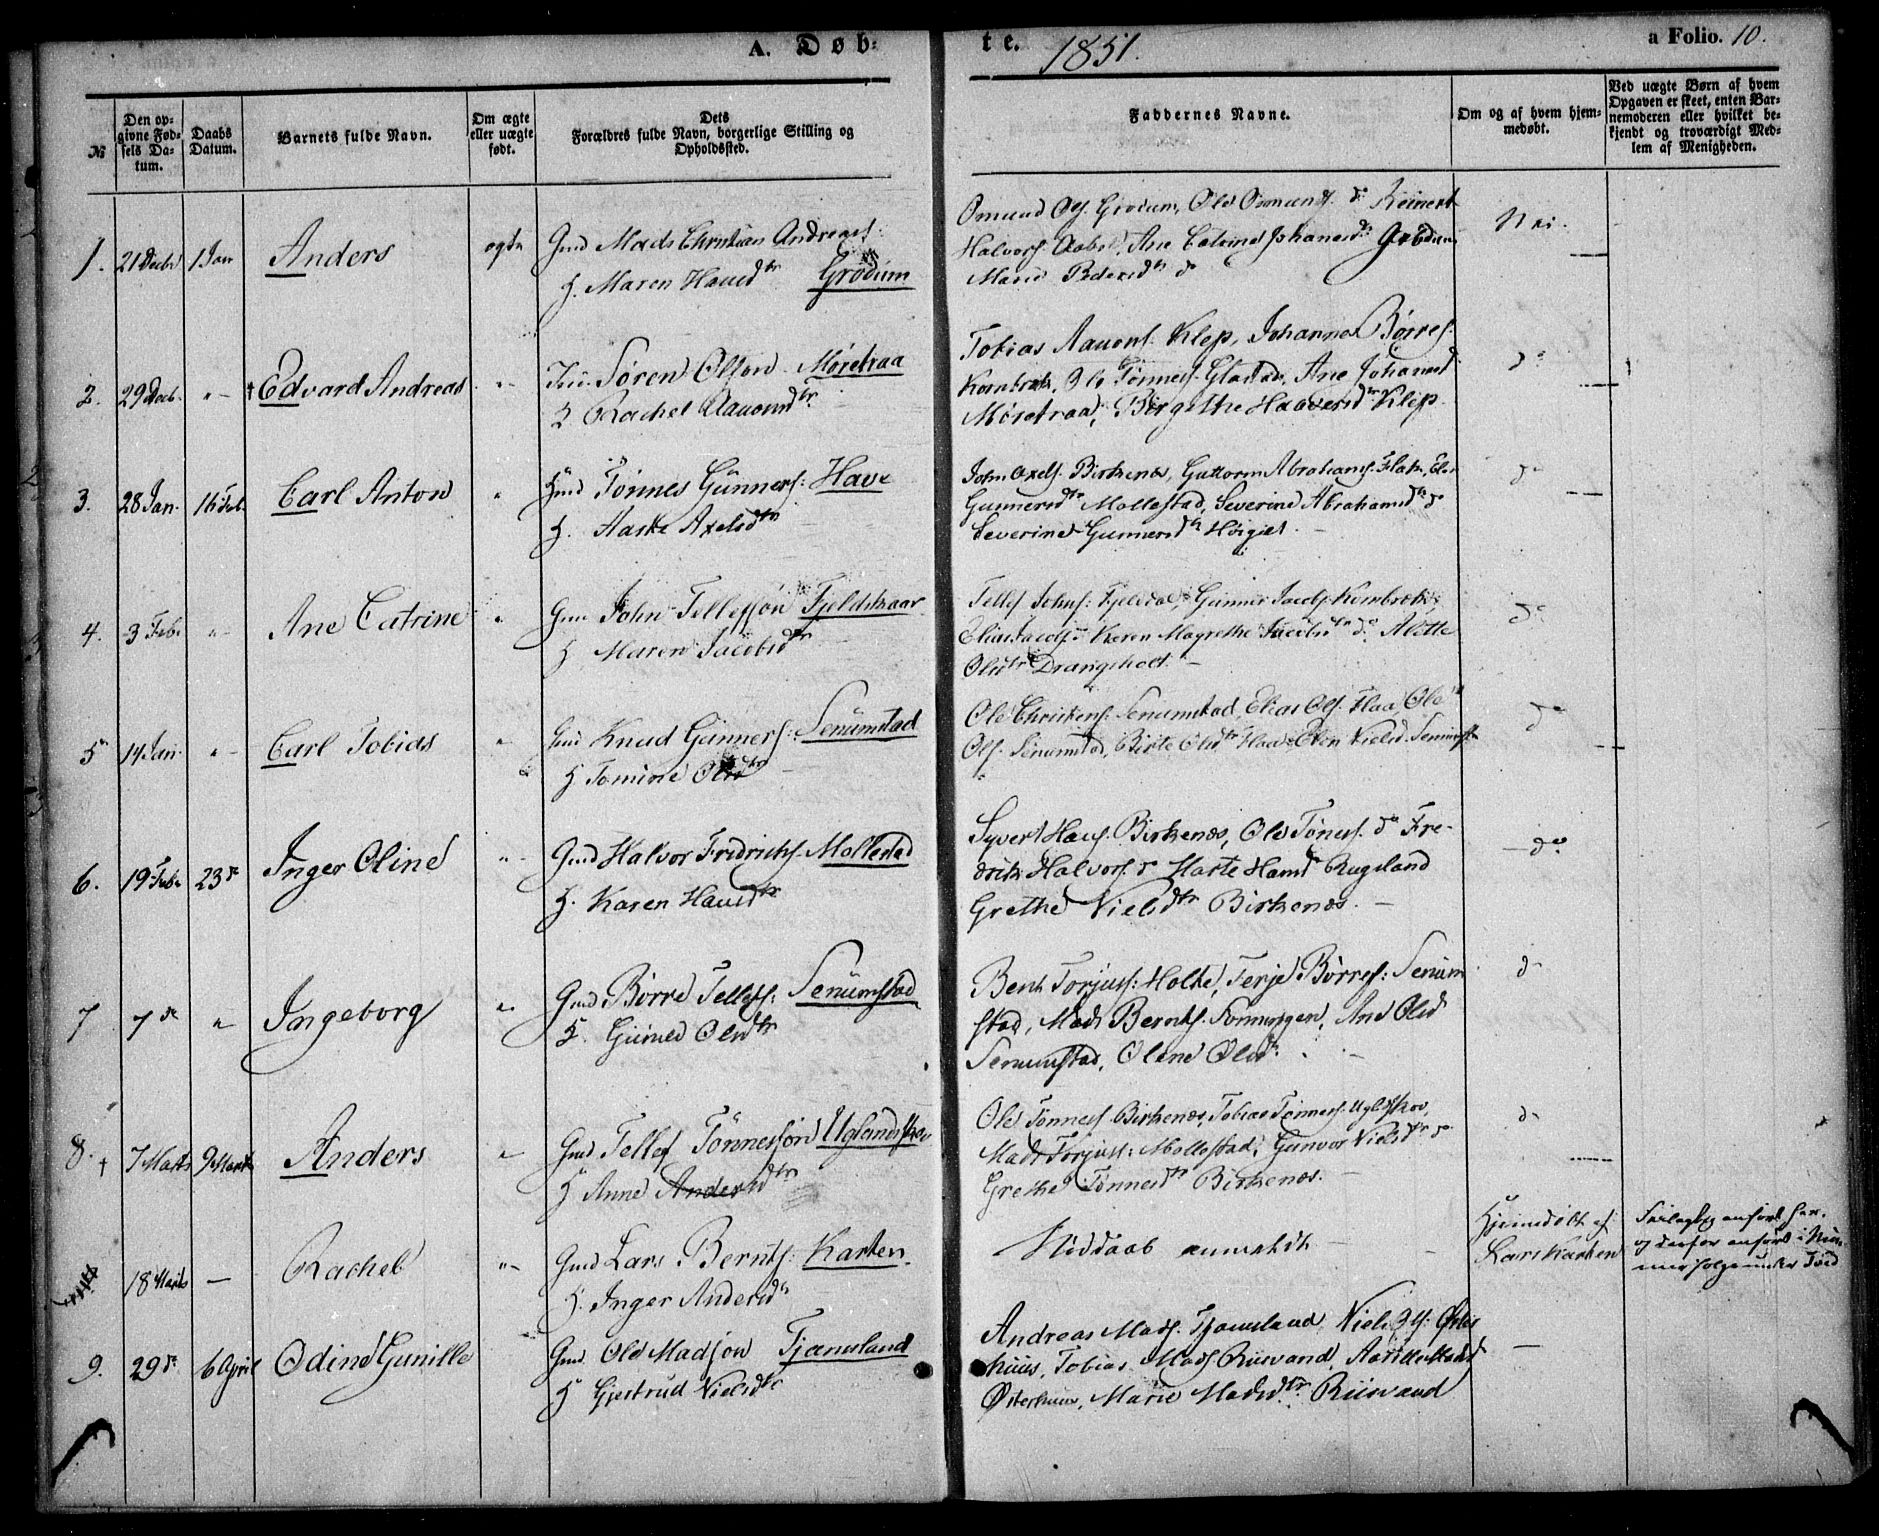 A. Døb-
te. 1851.
a Folio. 10.
№
Den op-
givne Fød-
sels Da-
tum.
Daabs
Datum.
Barnets fulde Navn.
Om ægte
eller uægte
født.
Dets
Forældres fulde Navn, borgerlige Stilling og
Opholdssted.
Faddernes Navne.
Om og af hvem hjem-
medøbt.
Ved uægte Børn af hvem
Opgaven er skeet, enten Bar-
nemoderen eller hvilket be-
kjendt og troværdigt Med-
lem af Menigheden.
1. 21 Decbr 1 Jan Anders ægte Gmd Mads Christian Andreas:
H. Maren Hansdtr Grødum
Omund Ols. Grødum, Ole Omunds. do Reinert
Halvors. Aabel, Ane Catrine Johanesdtr Grødum
Marie Pedersdtr do
Nei.
2. 29 Decb. " Edvard Andreas " Søren Olson Møretraa
H Rachel Aavonsdtr
Tobias Aavons. Klep, Johannes Børres.
Kornbrek, Ole Tønnes. Glastad, Ane Johansd
Møretraa, Birgithe Haaversdtr Klep.
do
3. 28 Jan. 16 Feb. Carl Anton " Gmd Tønnes Gunners: Have
H. Aaste Axelsdtr
John Axels. Birkenes, Guttorm Abrahams. Flak,
Gunnersdtr Mollestad, Severine Abrahamsdtr do
Severine Gunnersdtr Høigilt
do
4. 3 Feb. " Ane Catrine " Gmd John Tellefsøn Fjeldstraar
H Maren Jacobsdtr
Tellef Johns: Fjeldal, Gunner Jacobs. Kornbrek,
Elias Jacobs. do Karen Magrethe Jacobsdtr do. Alette
Olsdtr Drangsholt.
do
5 14 Jan. " Carl Tobias " Gmd Knud Gunners: Senumstad
H Tomine Olsdtr
Ole Christens: Senumstad, Elias Ols. Flaa, Ole
Ols. Senumstad, Birte Olsdtr Flaa, Elen Nielsd. Senumst
do
6. 19 Feb. 23 do Inger Oline " Gmd Halvor Fridrichs. Mollestad
H. Karen Hansdtr
Syvert Hans. Birkenes, Ole Tønes. do Fre-
drik Halvors. do Harte Hansd Rugsland
Grethe Nielsdtr Birkenes.
do
7 7 do " Ingeborg " Gmd Børre Tellefs: Senumstad
H. Guneld Olsdtr
Bent Torjus: Holte, Terje Børres: Senum
stad, Mads Bernts. Tonningen, Ane Olsd
Senumstad, Oline Olsdtr
do
8. † 7 Marts 9 Marts Anders " Gmd Tellef Tønnessøn Uglandsskov
H Anne Andersdtr
Ole Tønnes. Birkenes, Tobias Tønnes. Uglskov,
Mads Torjus: Mollestad, Gunvor Nielsdtr do
Grethe Tønnesdtr Birkenes.
do
18 Marts — Rachel " Gmd Lars Bernts: Karten
H. Inger Andersdtr
Nøddaab anmeldt
Hjemdøbt af
Lars Karten
Feilagtig anført her.
og derfor anført i Num-
merfølge under Tved
9. 29 do 6 April Odine Gunille Gmd Ole Madsøn Tjamsland
H Gjertrud Nielsdtr
Andreas Mads. Tjamsland, Niels Ols. Øster
huus, Tobias Mads. Risvand,
Østerhuus, Marie Madsdtr. Risvand